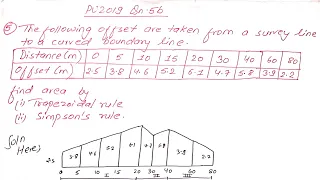 PU2019 Qn-5b
⑤ The following offset are taken from a survey line
to a curved boundary line.
Distance(m) 0 5 10 15 20 30 40 60 80
Offset(m) 2.5 3.8 4.6 5.2 6.1 4.7 5.8 3.9 2.2
find area by
(i) Trapezoidal rule
(ii) Simpson's rule.
Soln
Here,
2.5 3.8 4.6 5.2 6.1 4.7 5.8 3.9 2.2
0 5 10 15 20 30 40 60 80
I II III